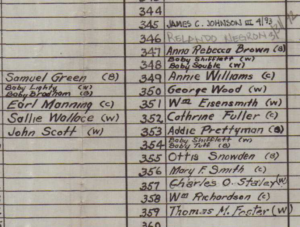 344
345 JAMES C. JOHNSON III 4/93
346 ROLANDO NEGRON
347 Anna Rebecca Brown (B)
Baby Shifflett (w)
348 Baby Sauble (w)
Samuel Green (B) 349 Annie Williams (c)
Baby Lighty (w)
Baby Branham (B) 350 George Wood (w)
Earl Manning (c) 351 Wm Eisensmith (w)
Sallie Wallace (w) 352 Cathrine Fuller (c)
John Scott (w) 353 Addie Prettyman (B)
Baby Shifflett (w)
354 Baby Tuff (B)
355 Ottis Snowden (B)
356 Mary F. Smith (c)
357 Charles O. Staley (w)
358 Wm Richardson (c)
359 Thomas M. (w)
360